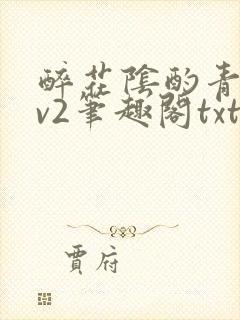 醉花陰酌青
v2筆趣閣txt
賈府